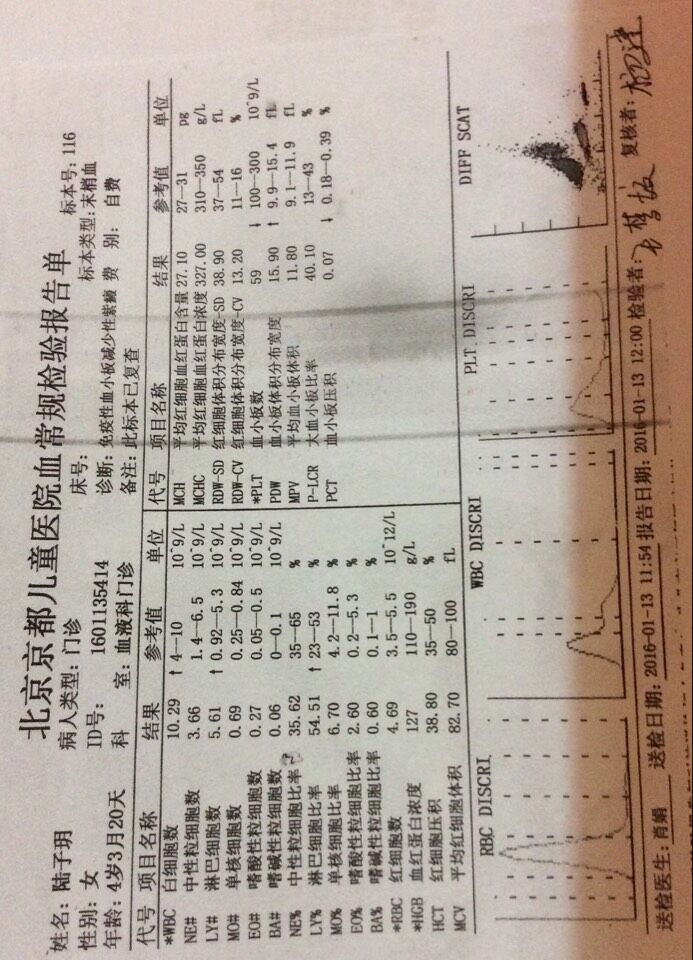 北京京都儿童医院血常规检验报告单
姓名: 陆子玥 病人类型: 门诊 床号: 标本号: 116
性别: 女 ID号: 1601135414 诊断: 免疫性血小板减少性紫癜 标本类型: 末梢血
年龄: 4岁3月20天 科 室: 血液科门诊 备注: 此标本已复查 费 别: 自费
代号 项目名称 结果 参考值 单位 代号 项目名称 结果 参考值 单位
*WBC 白细胞数 10.29 ↑ 4—10 10^9/L MCH 平均红细胞血红蛋白含量 27.10 27—31 pg
NE# 中性粒细胞数 3.66 1.4—6.5 10^9/L MCHC 平均红细胞血红蛋白浓度 327.00 310—350 g/L
LY# 淋巴细胞数 5.61 ↑ 0.92—5.3 10^9/L RDW-SD 红细胞体积分布宽度-SD 38.90 37—54 fL
MO# 单核细胞数 0.69 0.25—0.84 10^9/L RDW-CV 红细胞体积分布宽度-CV 13.20 11—16 %
EO# 嗜酸性粒细胞数 0.27 0.05—0.5 10^9/L *PLT 血小板数 59 ↓ 100—300 10^9/L
BA# 嗜碱性粒细胞数 0.06 0—0.1 10^9/L PDW 血小板体积分布宽度 15.90 ↑ 9.9—15.4 fL
NE% 中性粒细胞比率 35.62 35—65 % MPV 平均血小板体积 11.80 9.1—11.9 fL
LY% 淋巴细胞比率 54.51 ↑ 23—53 % P-LCR 大血小板比率 40.10 13—43 %
MO% 单核细胞比率 6.70 4.2—11.8 % PCT 血小板压积 0.07 ↓ 0.18—0.39 %
EO% 嗜酸性粒细胞比率 2.60 0.2—5.3 %
BA% 嗜碱性粒细胞比率 0.60 0.1—1 %
*RBC 红细胞数 4.69 3.5—5.5 10^12/L
*HGB 血红蛋白浓度 127 110—190 g/L
HCT 红细胞压积 38.80 35—50 %
MCV 平均红细胞体积 82.70 80—100 fL
RBC DISCRI WBC DISCRI PLT DISCRI DIFF SCAT
送检医生: 肖娟 送检日期: 2016-01-13 11:54 报告日期: 2016-01-13 12:00 检验者: 复核者: